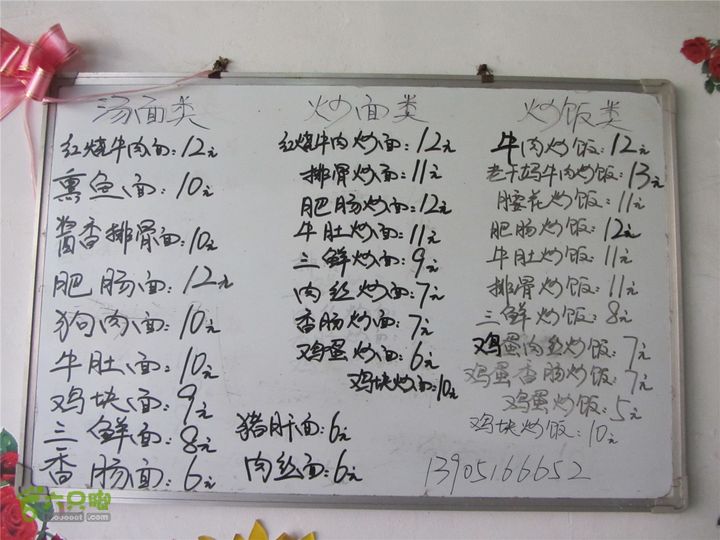 汤面类
红烧牛肉面:12元
熏鱼面:10元
酱香排骨面:10元
肥肠面:12元
狗肉面:10元
牛肚面:10元
鸡块面:9元
三鲜面:8元
香肠面:6元
猪肝面:6元
肉丝面:6元
炒面类
红烧牛肉炒面:12元
排骨炒面:11元
肥肠炒面:12元
牛肚炒面:11元
三鲜炒面:9元
肉丝炒面:7元
香肠炒面:7元
鸡蛋炒面:6元
鸡块炒面:10元
炒饭类
牛肉炒饭:12元
老干妈牛肉炒饭:13元
腰花炒饭:11元
肥肠炒饭:12元
牛肚炒饭:11元
排骨炒饭:11元
三鲜炒饭:8元
鸡蛋肉丝炒饭:7元
鸡蛋香肠炒饭:7元
鸡蛋炒饭:5元
鸡块炒饭:10元
13905166652
六只脚